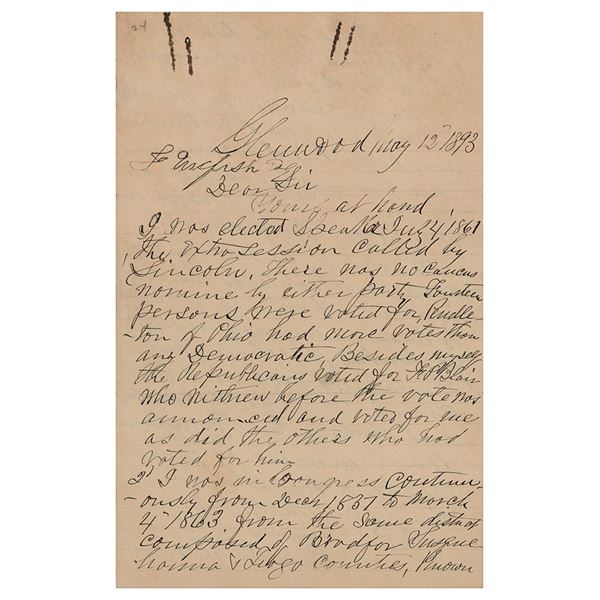 24
Glenwood May 12" 1893
Dear Sir
Yours at hand,
I was elected Speaker July 4, 1861
the extra session called by
Lincoln. There was no caucus
nominee by either party Fourteen
persons were voted for, Pendle-
ton of Ohio had more votes than
any Democratic, Besides myself
the Republicans voted for F P Blair
who withrew before the vote was
announced and voted for me
as did the others who had
voted for him
2d I was in Congress continu-
ously from Decr 1851 to March
4" 1863 from the same district
composed of Bradfor Susque
hanna & Tioga Counties, Known